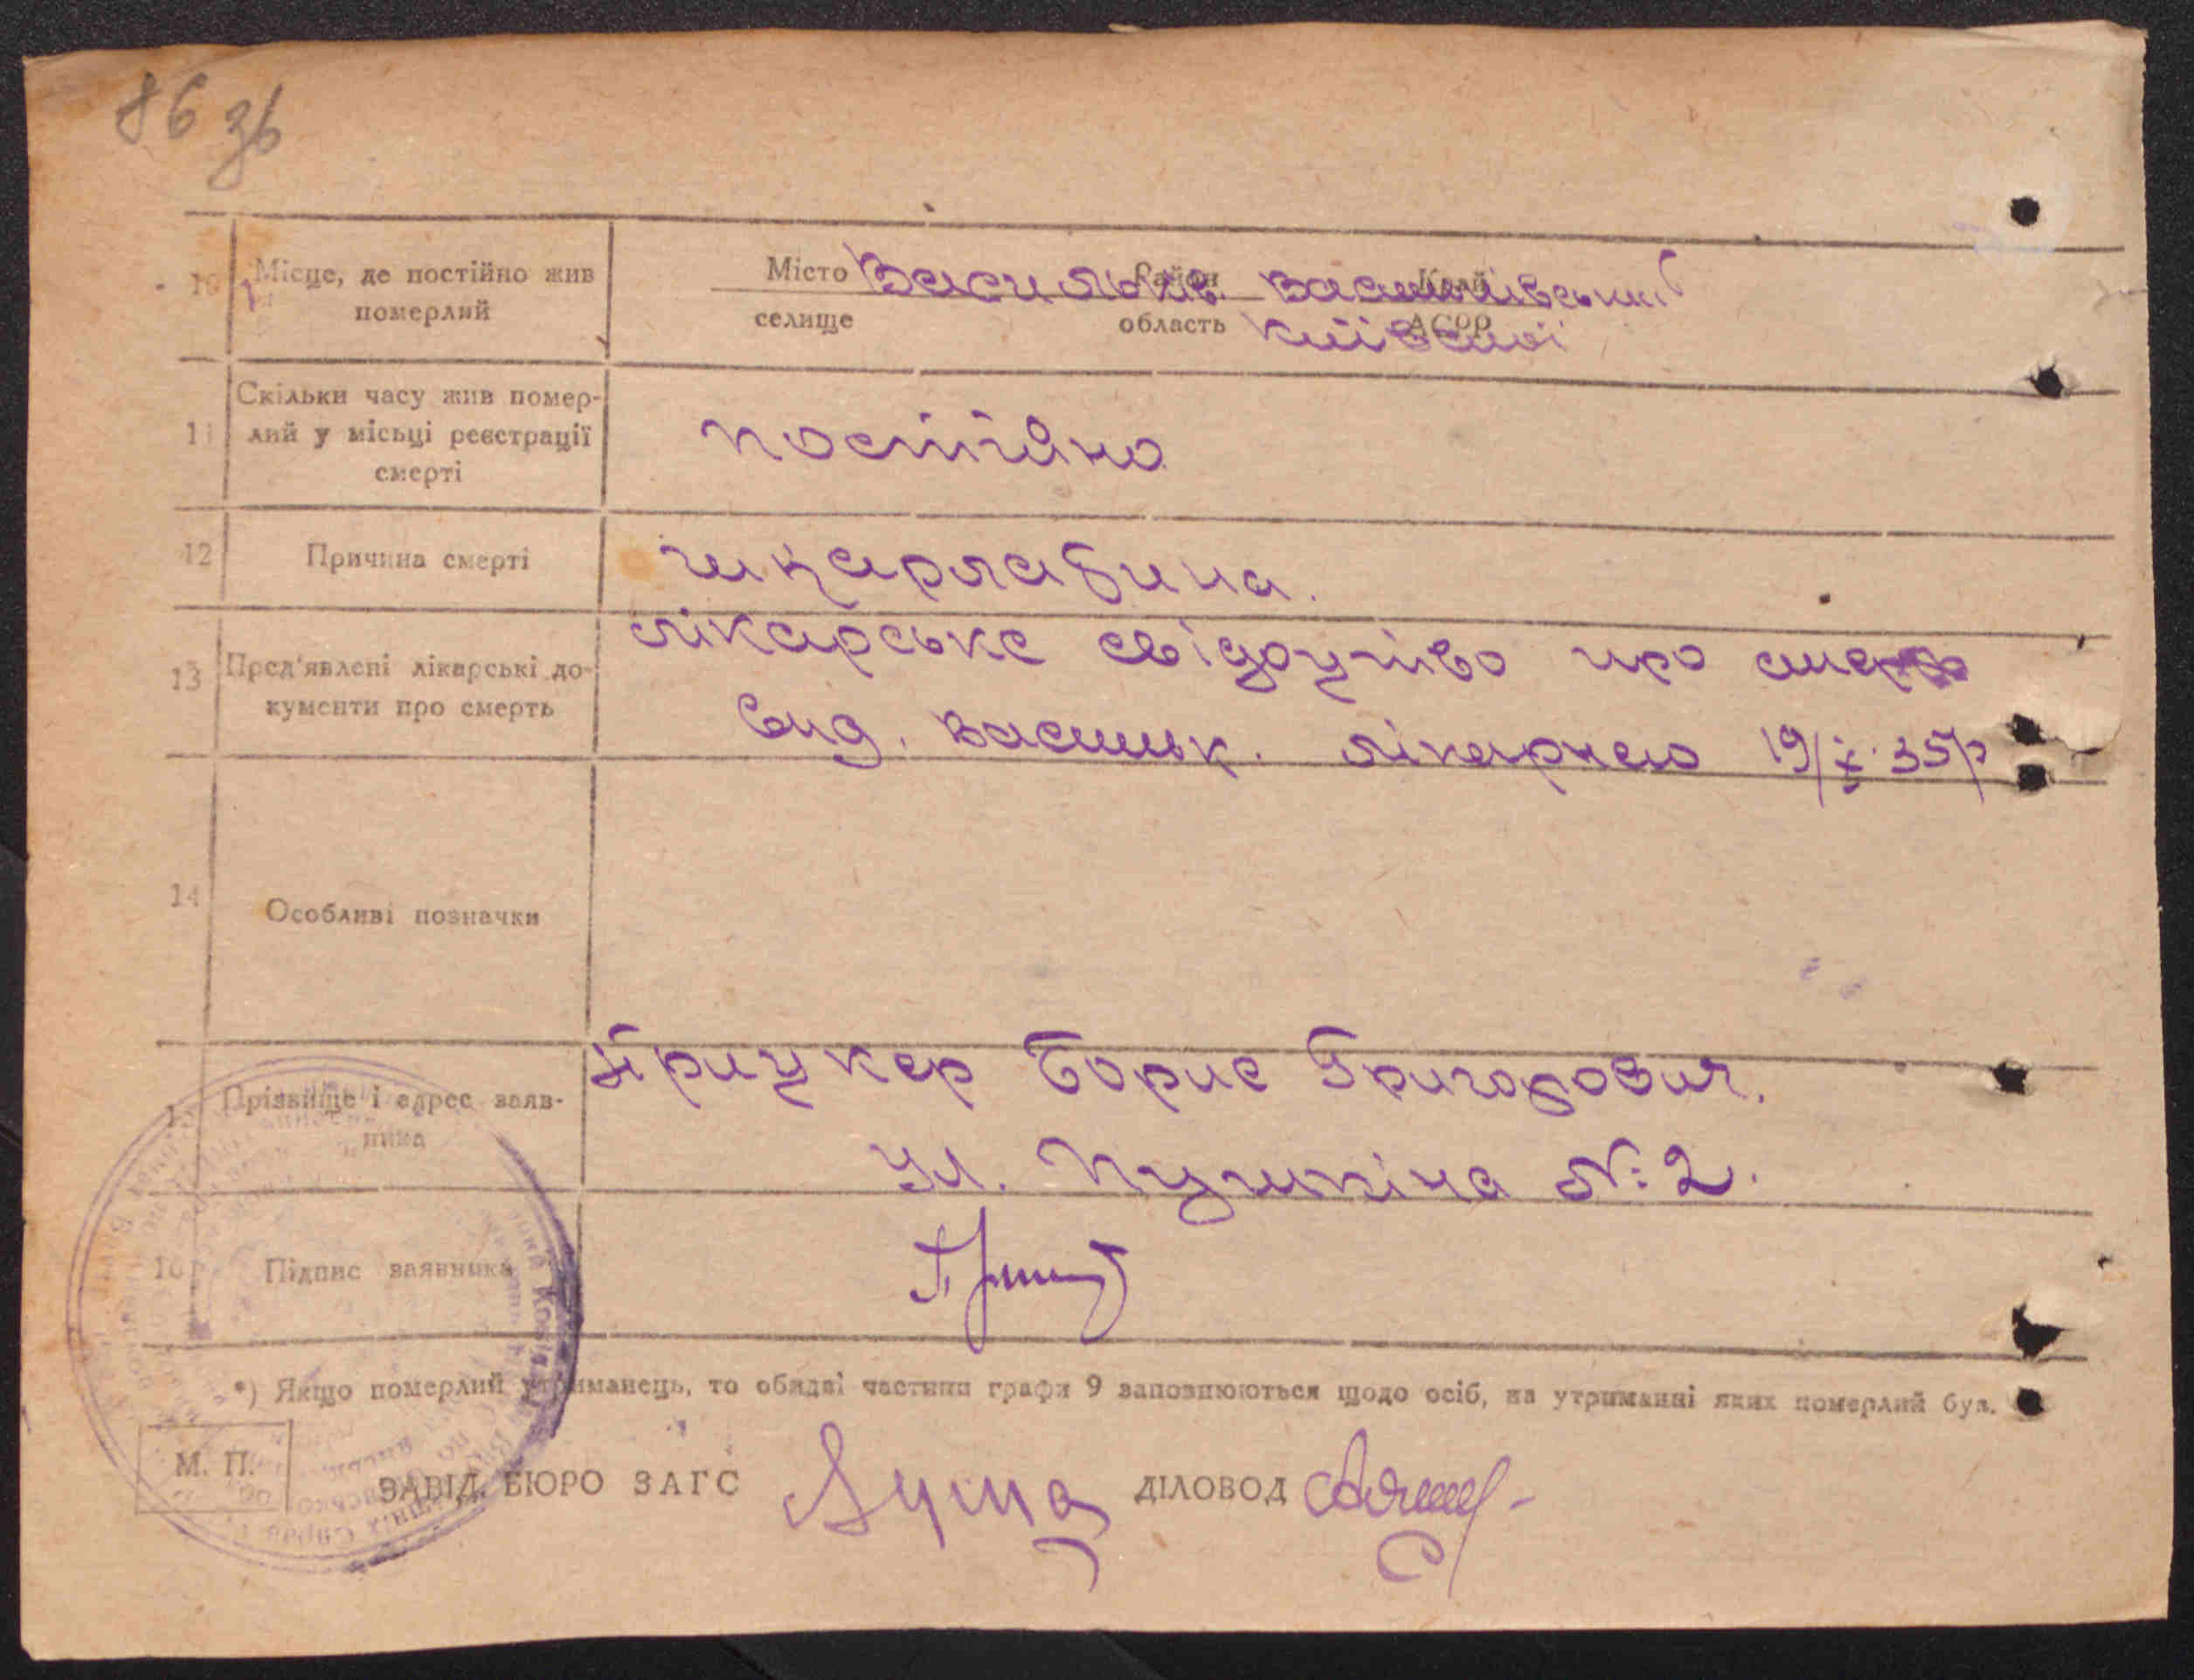 86 зв
10 Місце, де постійно жив померлий
Місто Васильків Район Васильківський Край
селище область Київської АСРР
11 Скільки часу жив помер-
лий у місьці реєстрації
смерті
постійно
12 Причина смерті
шкарлатина.
13 Пред'явлені лікарські до-
кументи про смерть
лікарське свідоцтво про смерть
вид. Васильк. лікарнею 19/X 35р
14 Особливі позначки
15 Прізвище і адрес заяв-
ника
Прицкер Борис Григорович.
ул. Пушкіна №: 2.
16 Підпис заявника
*) Якщо померлий утриманець, то обидві частини графи 9 заповнюються щодо осіб, на утриманні яких померлий був.
М. П.
ЗАВІД. БЮРО ЗАГС ДІЛОВОД